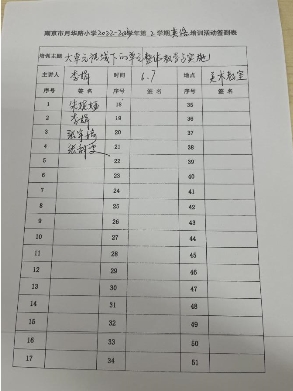 南京市月华路小学2022-2023学年第2学期美术培训活动签到表
培训主题 大单元视域下的单元整体教学与实施
主讲人 李梅 时间 6.7 地点 美术教室
序号 签名 序号 签名 序号 签名
1 18 35
2 李梅 19 36
3 20 37
4 21 38
5 22 39
6 23 40
7 24 41
8 25 42
9 26 43
10 27 44
11 28 45
12 29 46
13 30 47
14 31 48
15 32 49
16 33 50
17 34 51